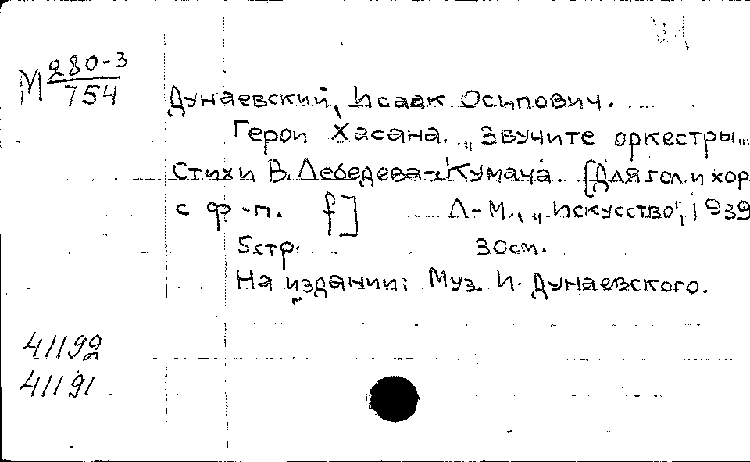 М 280-3
754
Дунаевский, Исаак Осипович.
Герои Хасана. „Звучите оркестры...
Стихи В. Лебедева-Кумача. [Для гол. и хор
с ф-п. f] Л-М., „Искусство", 1939
5 стр. 30 см.
На издании: Муз. И. Дунаевского.
41192
41191